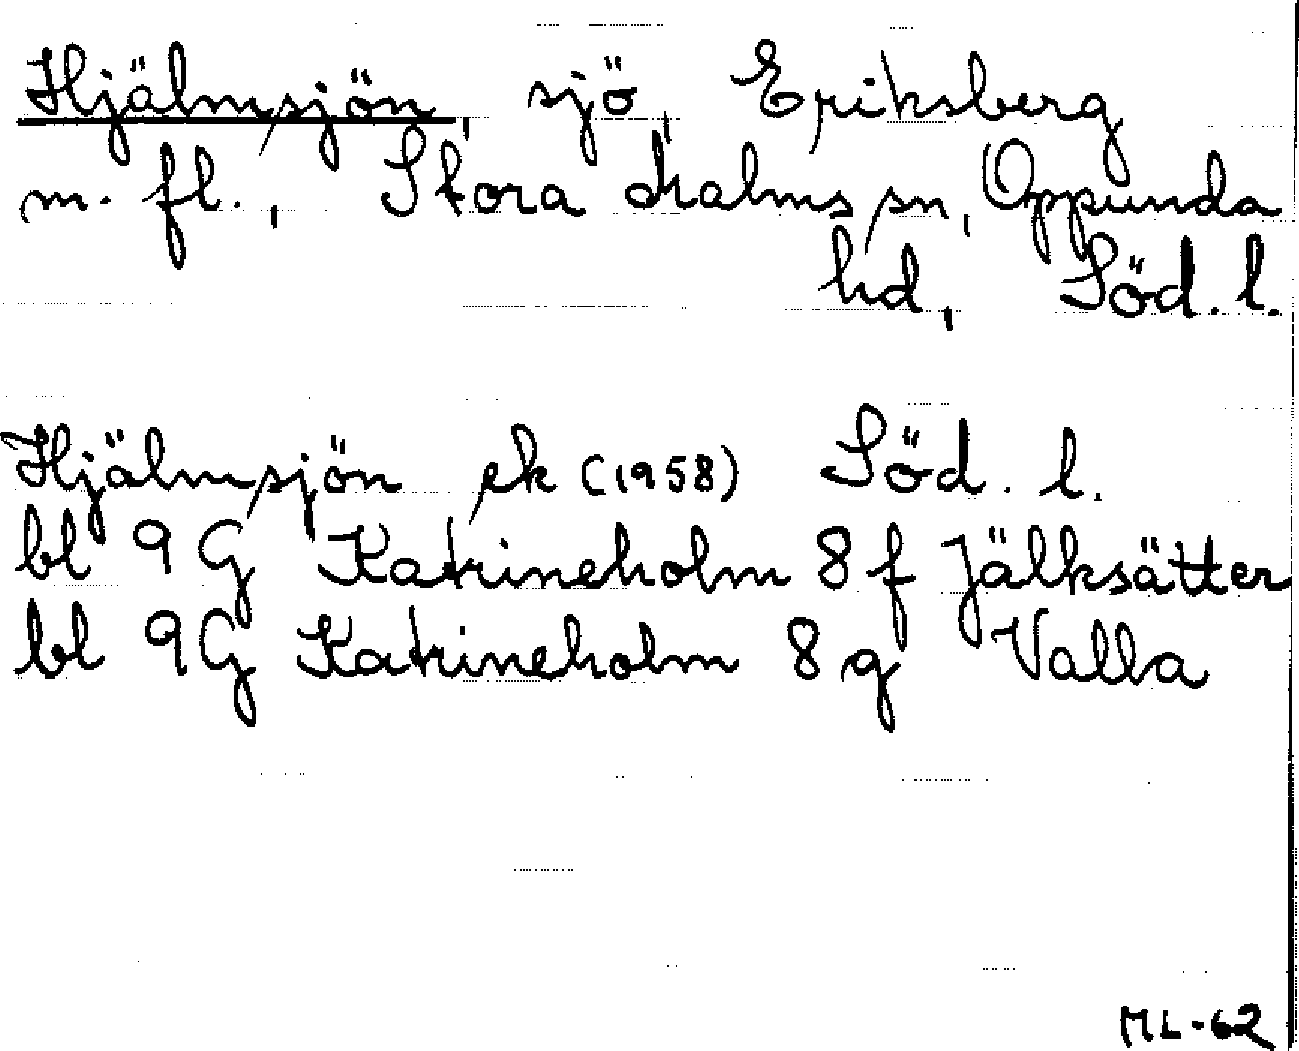 Hjälmsjön, sjö, Eriksberg
m. fl., Stora Malms sn, Oppunda
hd, Söd. l.
Hjälmsjön ek (1958) Söd. l.
bl 9 G Katrineholm 8 f Jälksätter
bl 9 G Katrineholm 8 g Valla
ML-62